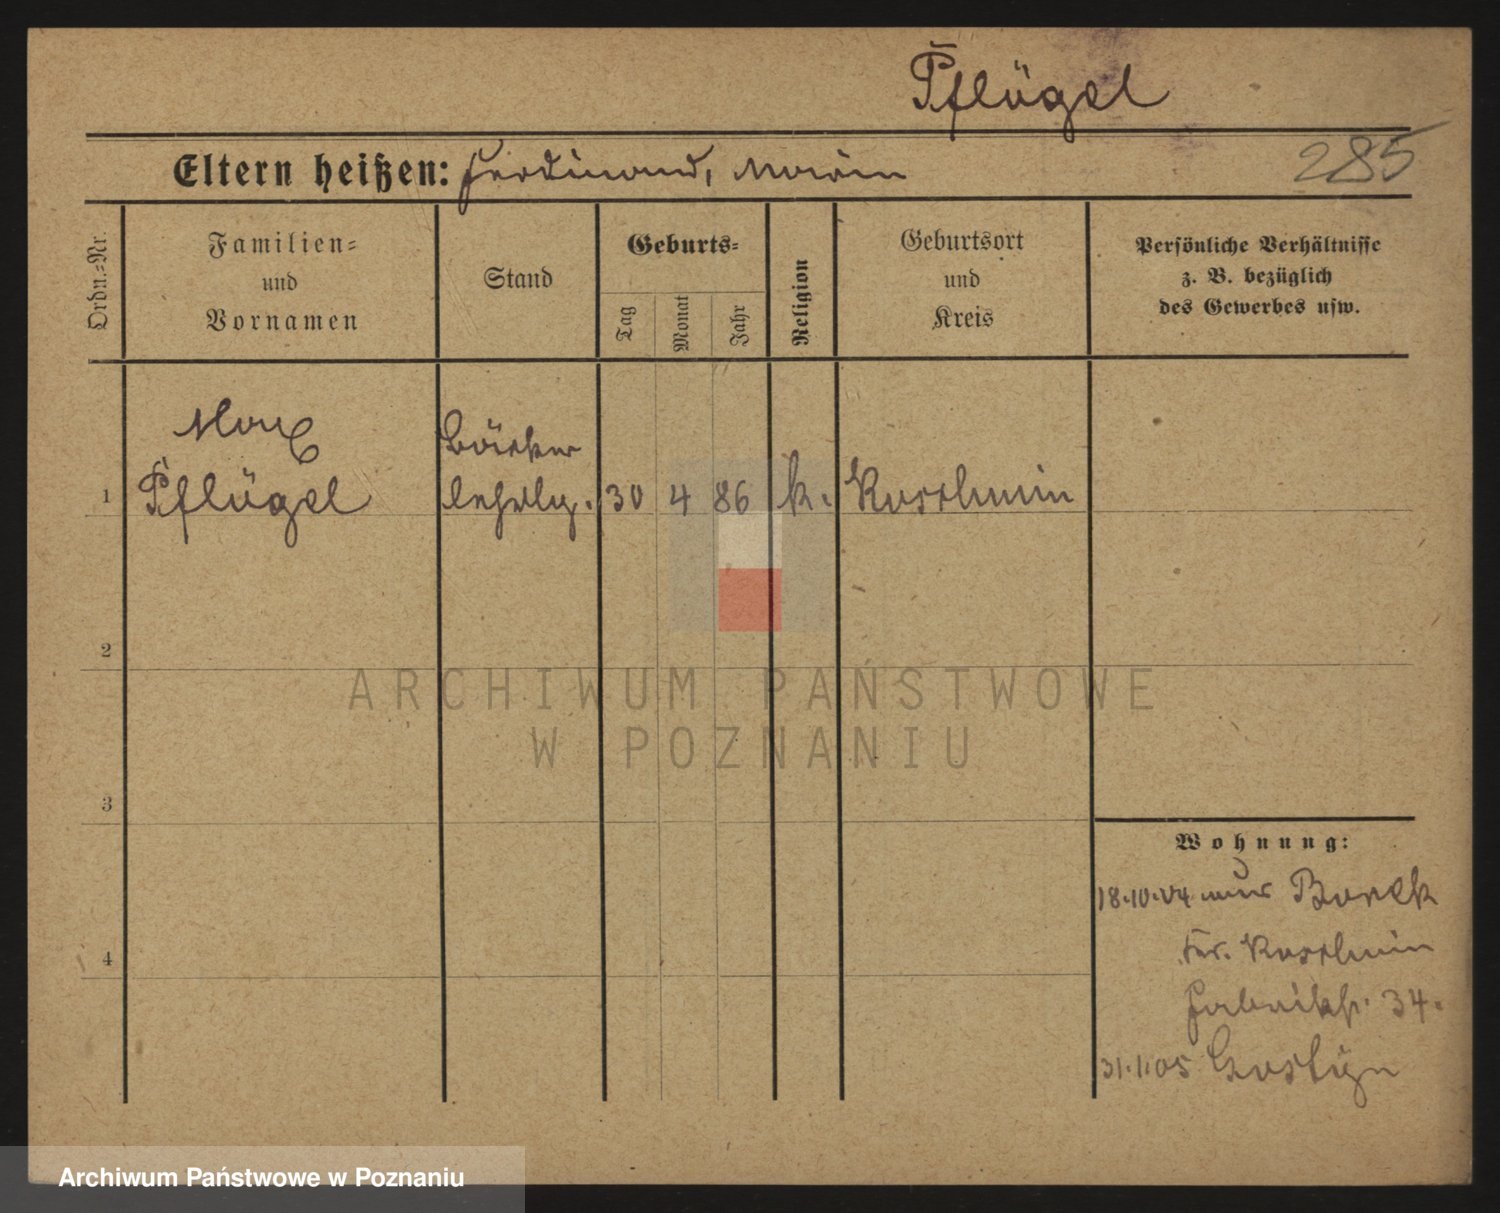 Pflügel
285
Eltern heißen: Ferdinand, Maria
Ordn.=Nr.
Familien=
und
Vornamen
Stand
Geburts=
Tag
Monat
Jahr
Religion
Geburtsort
und
Kreis
Persönliche Verhältnisse
z. B. bezüglich
des Gewerbes usw.
Max
1 Pflügel
Bäcker
lehrlg. 30 4 86 k. Koschmin
2
3
4
ARCHIWUM PAŃSTWOWE
W POZNANIU
Wohnung:
18.10.04 Borek
Kr. Koschmin
Fabrikstr. 34.
31.1.05 Gostyn
Archiwum Państwowe w Poznaniu